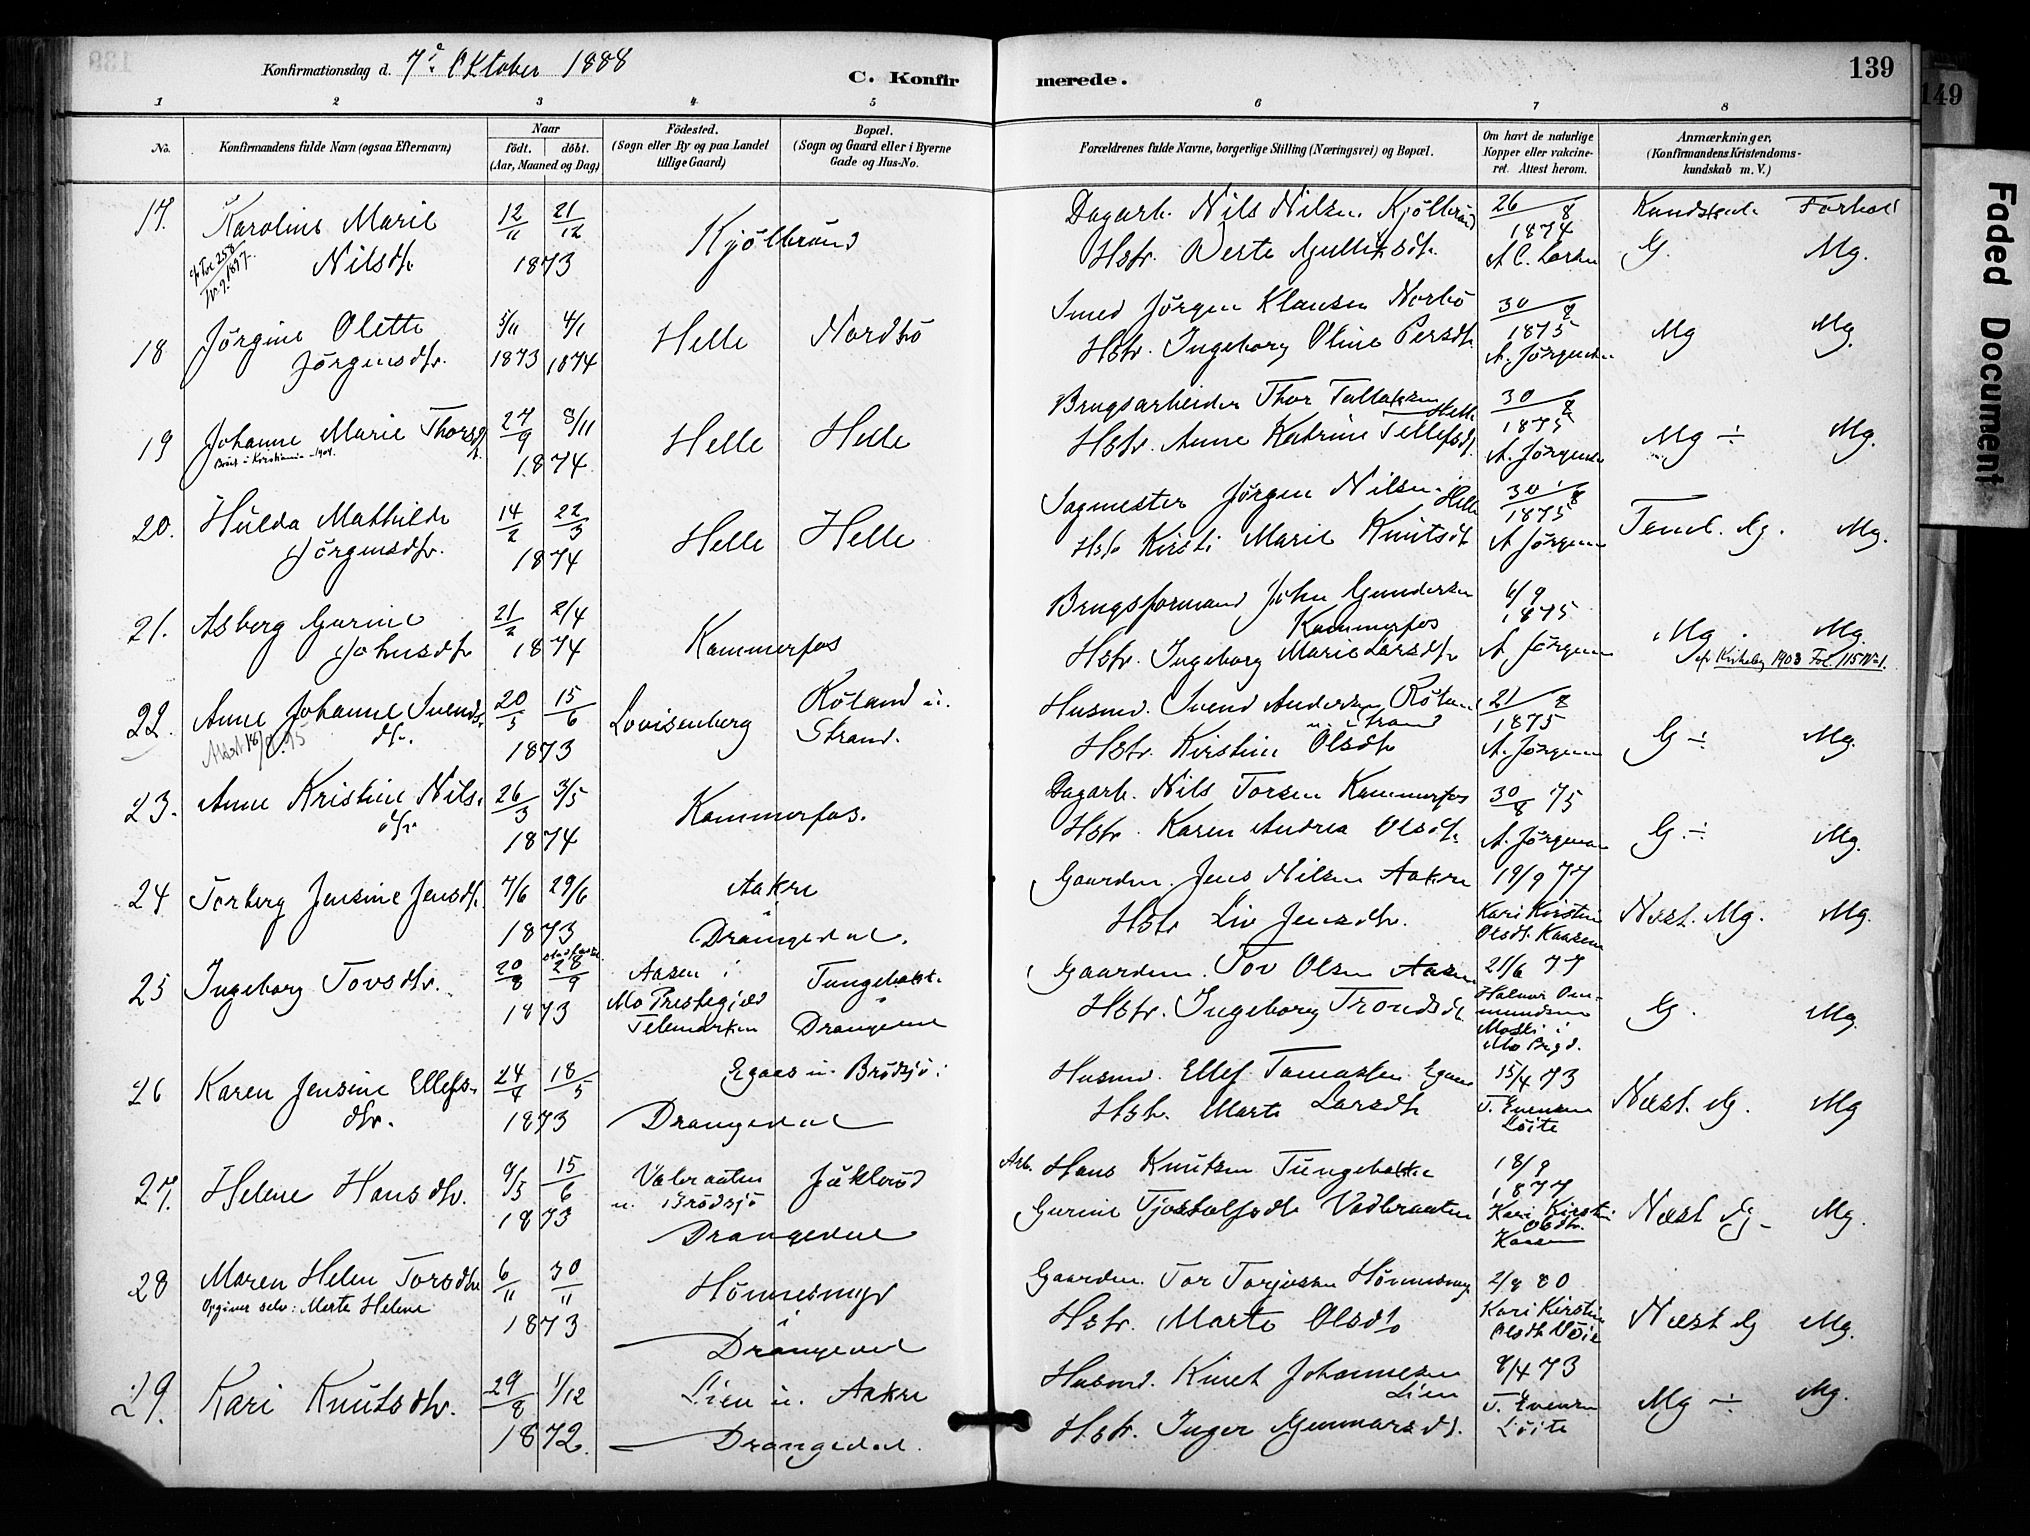 Konfirmationsdag d. 7de Oktober 1888
C. Konfirmerede.
139
149
Faded Document
1 2 3 4 5 6 7 8
No.
Konfirmandens fulde Navn (ogsaa Efternavn)
Naar
født. døbt.
(Aar, Maaned og Dag)
Födested.
(Sogn eller By og paa Landet
tillige Gaard)
Bopæl.
(Sogn og Gaard eller i Byerne
Gade og Hus-No.
Forældrenes fulde Navne, borgerlige Stilling (Næringsvei) og Bopæl.
Om havt de naturlige
Kopper eller vakcine-
ret. Attest herom.
Anmærkninger,
(Konfirmandens Kristendoms-
kundskab m. V.)
17. Karoline Marie 12/11 21/12 Kjølbrønd Dagarb. Nils Nilsen Kjølbrønd 26/8 Kundskab. Forhold
Nilsdtr. 1873 Hstr. 1874 G. Mg.
18 Jörgine Olette 5/11 4/1 Helle Nordbö Smed Jörgen Klausen Norbö 30/8 Mg Mg.
Jörgensdtr. 1873 1874 Hstr. Ingeborg Oline Persdtr. 1875
A. Jörgensen
19 Johanne Marie Thorsdtr. 27/9 8/11 Helle Helle Brugsarbeider Thor Tallaksen Helle 30/8 Mg ÷ Mg.
1874 Hstr. Anne Katrine Tellefsdtr. 1875
A. Jörgensen
20. Hulda Mathilde 14/2 22/3 Helle Helle Sagmester Jörgen Nilsen Helle 30/8 Temel. Mg. Mg.
Jörgensdtr. 1874 Hstr Kirsti Marie Knutsdtr 1875
A Jörgensen
21. Asberg Gurine 21/2 2/4 Kammerfos Brugsformand John Gundersen 6/9 Mg. Mg.
Johnsdtr 1874 Kammerfos 1875
Hstr. Ingeborg Marie Larsdtr A. Jörgensen Kirkebog 1903 Fol. 115 No 1.
22. Anne Johanne Svends- 20/5 15/6 Lovisenberg Röland u. Husmd. Svend Andersen Röland 21/8 G ÷ Mg.
dtr. 1873 Strand. u. Strand 1875
Hstr. Kirstine Olsdtr A. Jörgensen
23. Anne Kristine Nils- 26/3 3/5 Kammerfos. Dagarb. Nils Torsen Kammerfos 30/8 75 G ÷ Mg.
dtr. 1874 Hstr. Karen Andrea Olsdtr. A. Jörgensen
24 Torberg Jensine Jensdtr. 7/6 29/6 Aakre Gaardm. Jens Nilsen Aakre 19/9 77 Næst. Mg. Mg.
1873 Drangedal. Hstr Liv Jensdtr. Kari Kirstine
Olsdtr. Kaasene
25 Ingeborg Tovsdtr. 20/8 28/9 Aasen i Tungeholt. Gaardm. Tov Olsen Aasen 21/6 77 G. Mg.
1873 Mo Prestegjeld Hstr. Ingeborg Trondsdtr.
Telemarken Drangedal Mo Prgd.
26 Karen Jensine Ellefs- 24/4 18/5 Egaas u. Brödsjö. Husmd. Ellef Tomassen Egaas 15/4 73 Næst. Mg. Mg
dtr. 1873 Drangedal Hstr. Marte Larsdtr T. Evensen
Löite
27. Helene Hansdtr. 9/5 15/6 Valeraaten Jäklerød Arb. Hans Knutsen Tungeholt 18/9 Næst Mg. Mg.
1873 u. Brödsjö 1877
Drangedal Gurine Kari Kirstine
Olsdtr. Kaasen
28 Maren Helen Torsdtr 6/11 30/11 Hömmesmyr Gaardm. Tor Torjussen Hömmesmyr 2/8 80 Næst Mg Mg.
Opgiver selv: Marte Helene 1873 i Drangedal Hstr. Marte Olsdtr Kari Kirstine
Olsdtr
29. Kari Knutsdtr. 29/8 1/12 Lien u. Aakre Husmd. Knut Johannesen 8/4 73 Mg ÷ Mg.
1872. Drangedal. Lien T. Evensen
Hstr. Inger Gunnarsdt. Löite